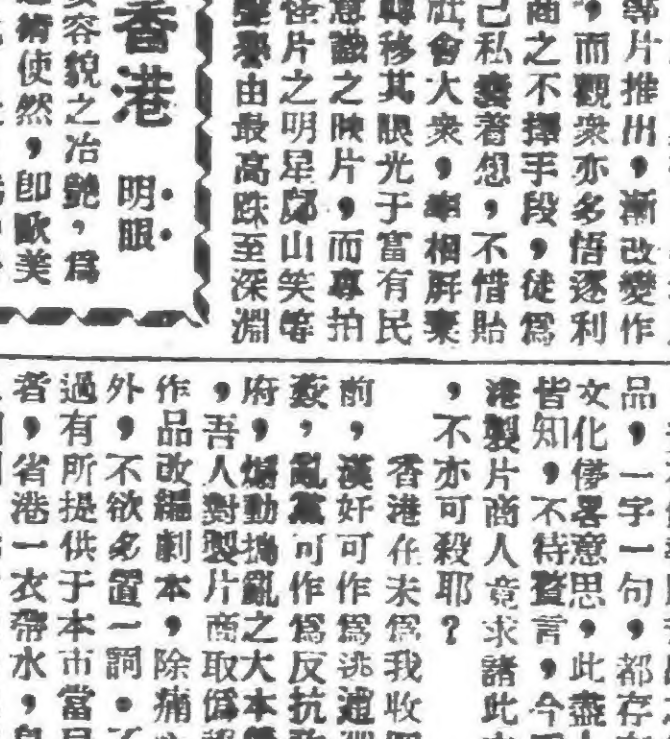 等片推出，漸改變作
，而觀衆亦多悟逐利
商之不擇手段，徒爲
己私囊着想，不惜貽
社會大衆，率相屏棄
轉移其眼光于富有民
意識之映片，而專拍
怪片之明星鄺山笑等
聲譽由最高跌至深淵
香港　明眼
容貌之冶艷，爲
術使然，即歐美
品，一字一句，都存
文化侵畧意思，此盡
皆知，不待贅言，今
港製片商人竟求諸此
，不亦可殺耶？
香港在未爲我收
前，漢奸可作爲逃逋
藪，亂黨可作爲反抗
府，煽動搗亂之大本
，吾人對製片商取僞
作品改編劇本，除痛
外，不欲多置一詞。
過有所提供于本市當
者，省港一衣帶水，